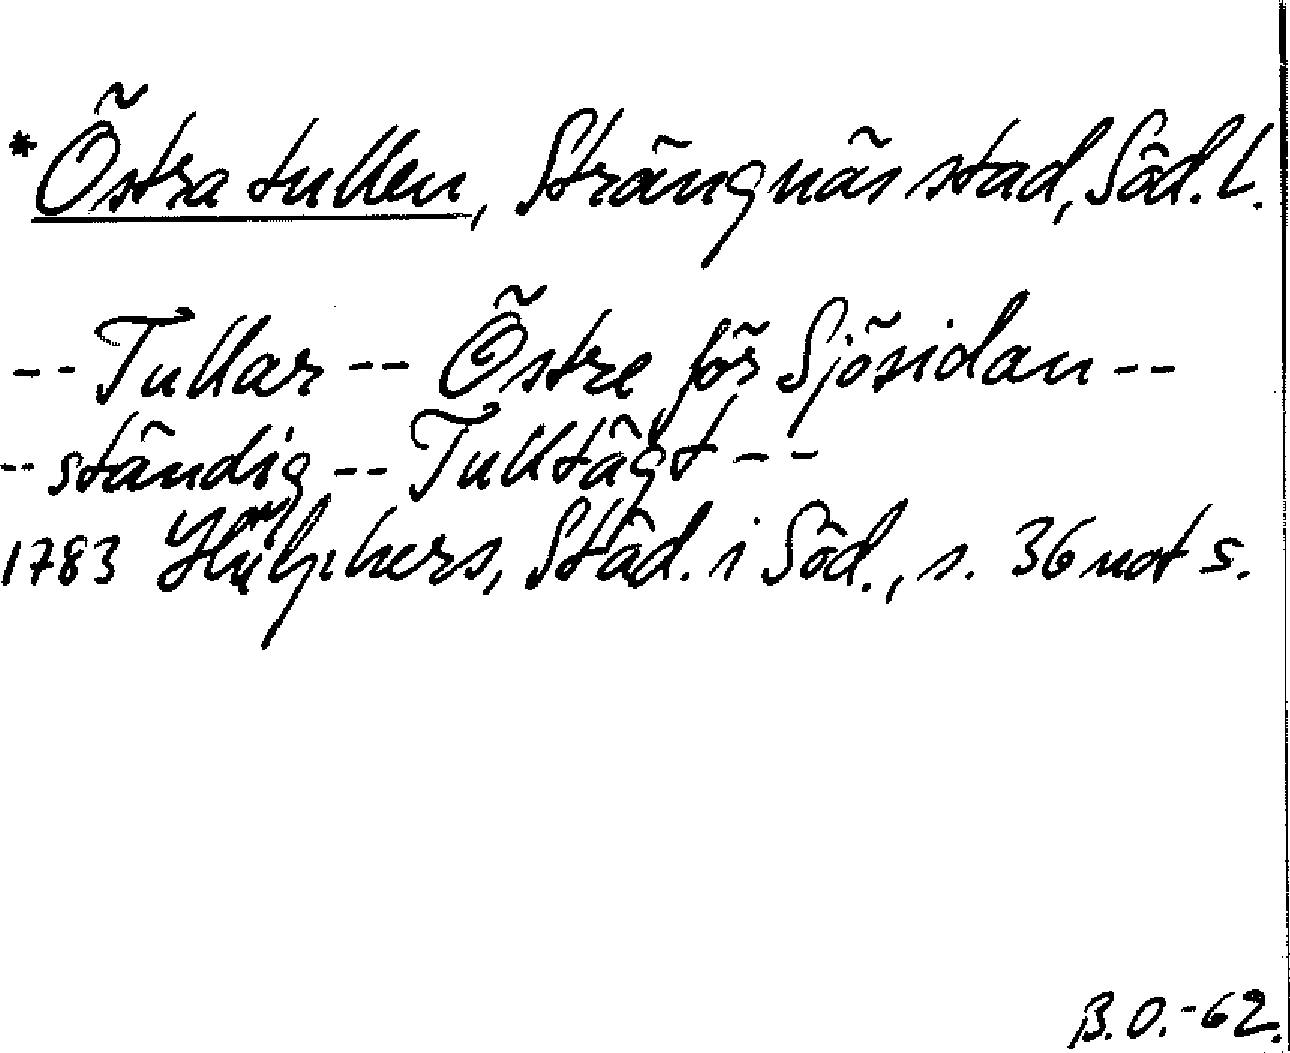 *Östra tullen, Strängnäs stad, Söd. l.
-- Tullar -- Östre för Sjösidan --
-- ständig -- Tulltägt --
1783 Hülphers, Städ. i Söd., s. 36 not s.
B.O.-62.